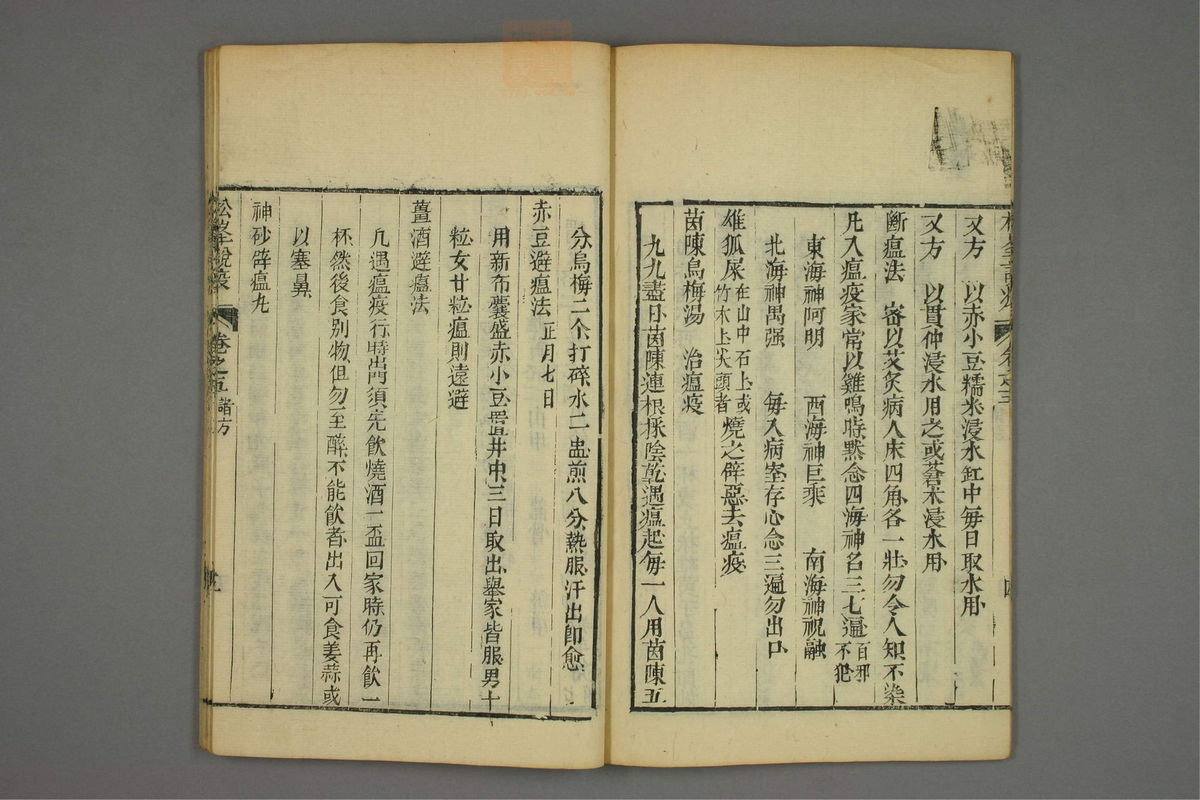 又方 以赤小豆糯米浸水缸中每日取水用
又方 以貫仲浸水用之或蒼朮浸水用
斷瘟法 密以艾灸病人床四角各一壯勿令人知不染
凡入瘟疫家常以雞鳴時默念四海神名三七遍百邪不犯
東海神阿明 西海神巨乘 南海神祝融
北海神禺强 每入病室存心念三遍勿出口
雄狐屎在山中石上或竹木上尖頭者燒之辟惡去瘟疫
茵陳烏梅湯 治瘟疫
九九盡日茵陳連根採陰乾遇瘟起每一人用茵陳五
分烏梅二个打碎水二盅煎八分熱服汗出即愈
赤豆避瘟法正月七日
用新布囊盛赤小豆置井中三日取出舉家皆服男十
粒女廿粒瘟則遠避
薑酒避瘟法
凡遇瘟疫行時出門須先飲燒酒一盃回家時仍再飲一
杯然後食別物但勿至醉不能飲者出入可食姜蒜或
以塞鼻
神砂辟瘟丸
松峯說疫 卷之五 諸方